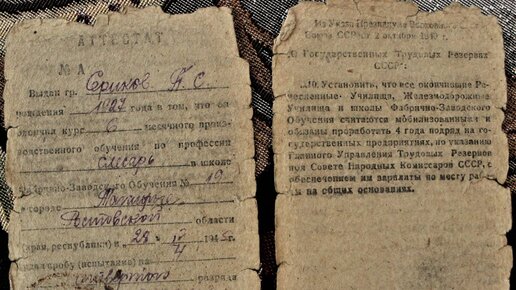 АТТЕСТАТ
№ А
Выдан гр. С. П. С.
рождения 1927 года в том, что он
окончил курс 6 месячного произ-
водственного обучения по профессии
слесарь в школе
Фабрично-Заводского Обучения № 19
в городе Таганроге
Ростовской области
(края, республики) и 29
сдал пробу (испытание) на
четвертого разряда
Из Указа Президиума Верховного
Совета СССР от 2 октября 1940 г.
„О Государственных Трудовых Резервах
СССР“:
„...10. Установить, что все окончившие Ре-
месленные Училища, Железнодорожные
Училища и школы Фабрично-Заводского
Обучения считаются мобилизованными и
обязаны проработать 4 года подряд на го-
сударственных предприятиях, по указанию
Главного Управления Трудовых Резервов
при Совете Народных Комиссаров СССР, с
обеспечением им зарплаты по месту рабо-
ты на общих основаниях.